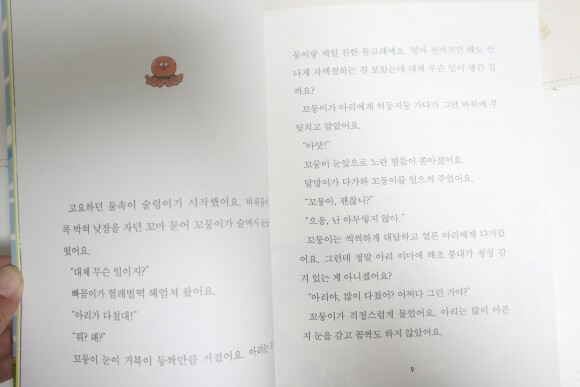 고요하던 물속이 술렁이기 시작했어요. 바위틈에
콕 박혀 낮잠을 자던 꼬마 문어 꼬뭉이가 슬며시 눈
떴어요.
“대체 무슨 일이지?”
빠꼼이가 헐레벌떡 헤엄쳐 왔어요.
“아리가 다쳤대!”
“뭐? 왜?”
꼬뭉이 눈이 거북이 등짝만큼 커졌어요. 아리는
뭉이랑 제일 친한 돌고래예요. 얼마 전까지만 해도 신
나게 자맥질하는 걸 보았는데 대체 무슨 일이 생긴 걸
까요?
꼬뭉이가 아리에게 허둥지둥 가다가 그만 바위에 부
딪치고 말았어요.
“아얏!”
꼬뭉이 눈앞으로 노란 별들이 쏟아졌어요.
달망이가 다가와 꼬뭉이를 일으켜 주었어요.
“꼬뭉아, 괜찮니?”
“으응, 난 아무렇지 않아.”
꼬뭉이는 씩씩하게 대답하고 얼른 아리에게 다가갔
어요. 그런데 정말 아리 이마에 해초 붕대가 칭칭 감
겨 있는 게 아니겠어요?
“아리야, 많이 다쳤어? 어쩌다 그런 거야?”
꼬뭉이가 걱정스럽게 물었어요. 아리는 많이 아픈
지 눈을 감고 꼼짝도 하지 않았어요.
9